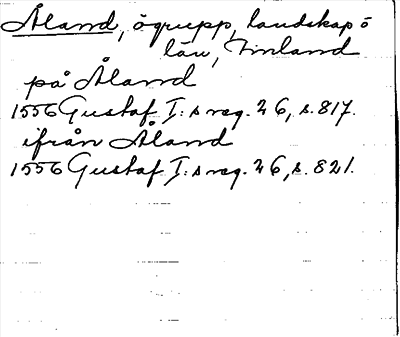 Åland, ögrupp, landskap o
län, Finland
på Åland
1556 Gustaf I:s reg. 26, s. 817.
ifrån Åland
1556 Gustaf I:s reg. 26, s. 821.